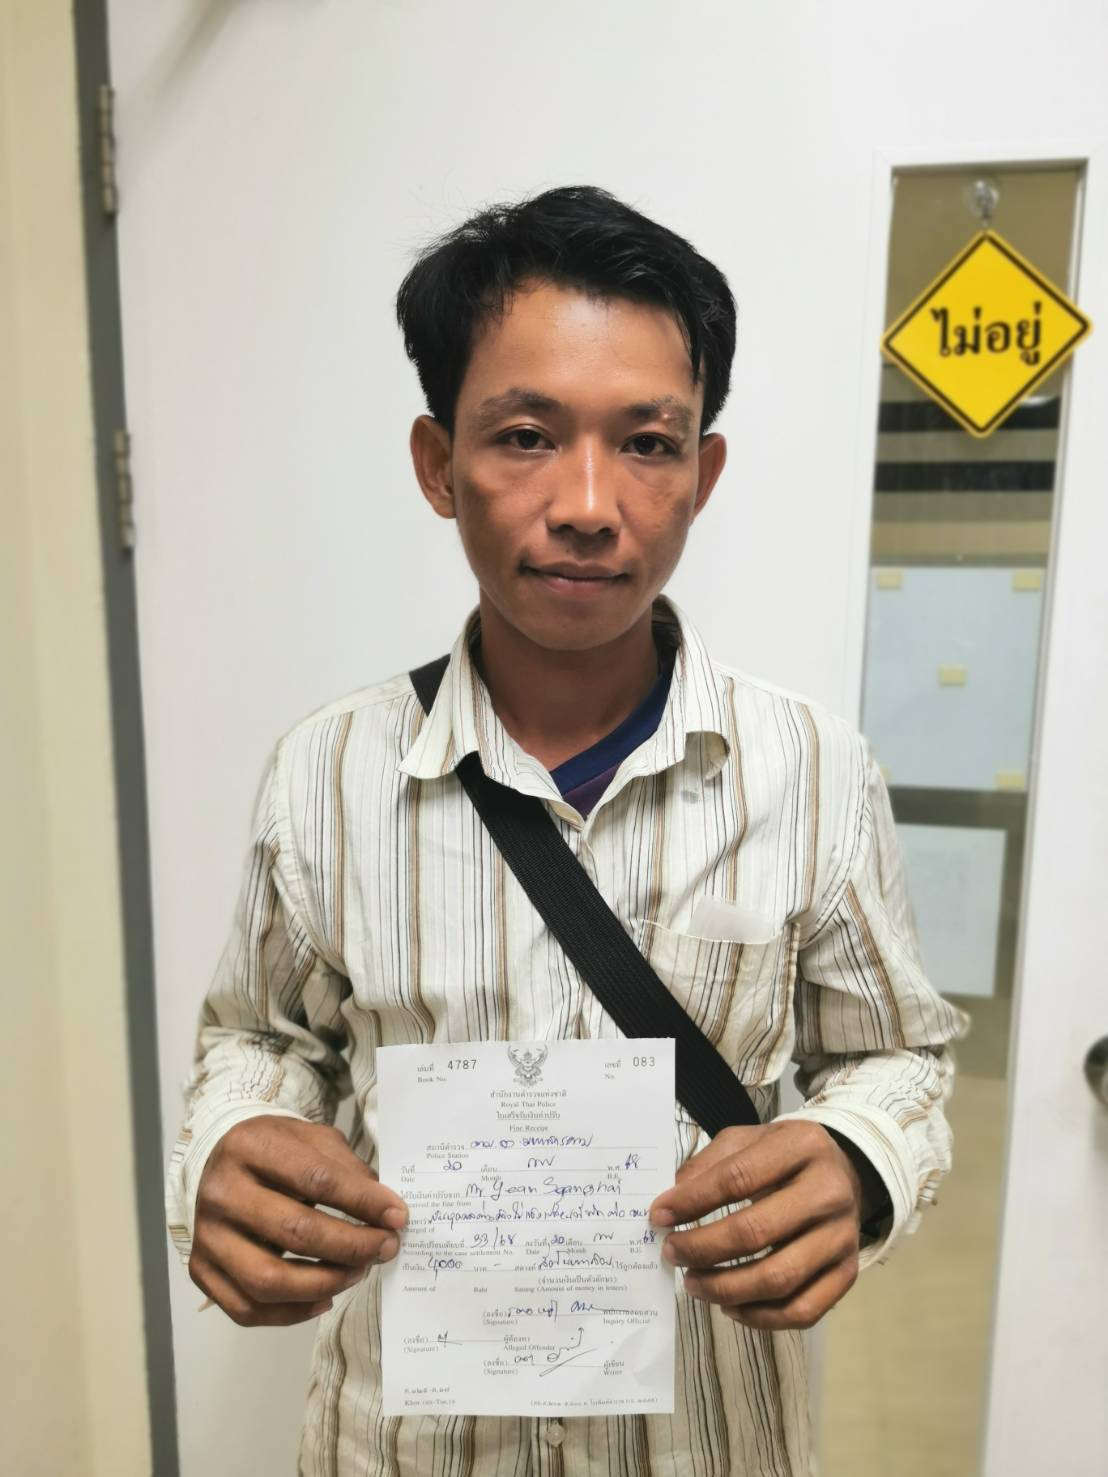 ไม่อยู่
เล่มที่ 4787 เลขที่ 083
Book No. No.
สำนักงานตำรวจแห่งชาติ
Royal Thai Police
ใบเสร็จรับเงินค่าปรับ
Fine Receipt
สถานีตำรวจ
Police Station
วันที่ 20 เดือน กพ พ.ศ. 68
Date Month B.E.
ได้รับเงินค่าปรับจาก Mr. Yean
Received the fine from
Charged of
ตามคดีเปรียบเทียบที่ 33/68 ลงวันที่ 20 เดือน กพ พ.ศ. 68
According to the case settlement No. Date Month B.E.
เป็นเงิน 4,000 บาท - สตางค์ ( สี่พันบาทถ้วน ) ไว้ถูกต้องแล้ว
(จำนวนเงินเป็นตัวอักษร)
Amount of Baht Satang (Amount of money in letters)
(ลงชื่อ) พนักงานสอบสวน
(Signature) Inquiry Official
(ลงชื่อ) ผู้ต้องหา
(Signature) Alleged Offender
(ลงชื่อ) ผู้เขียน
(Signature) Writer